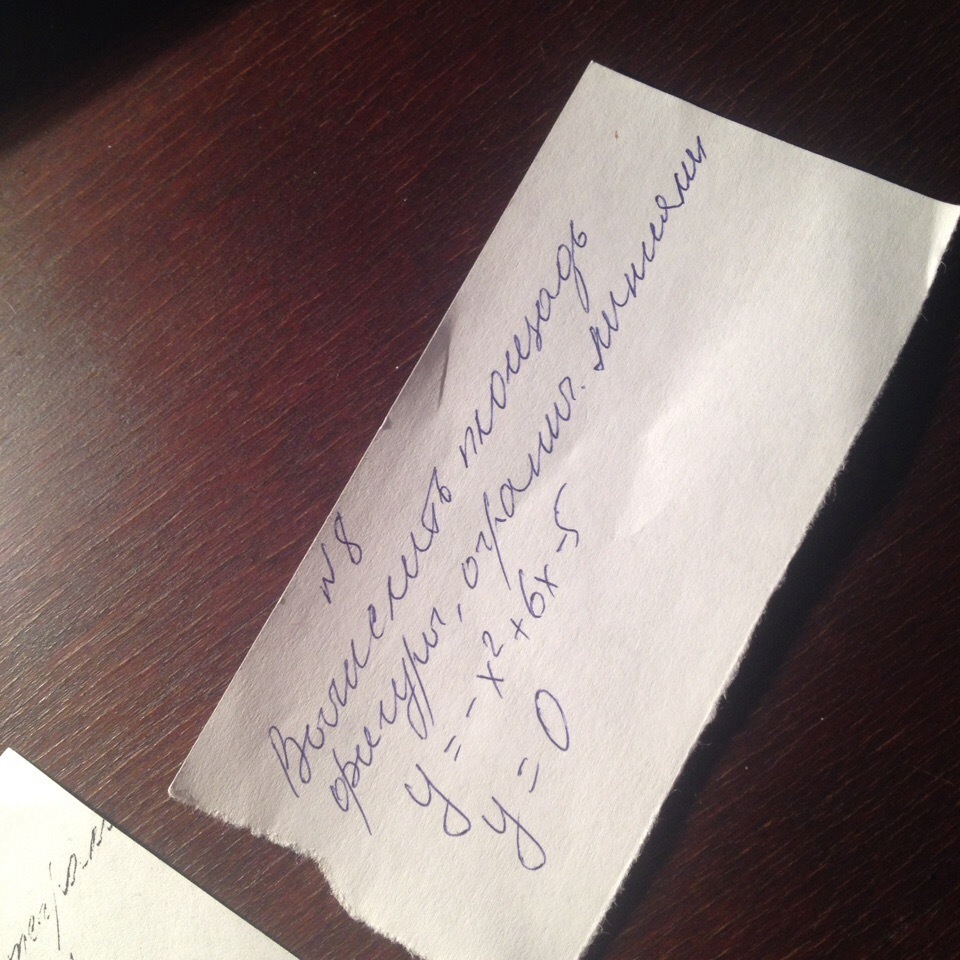 №8
Вычислить площадь
фигуры, огранич. линиями
y = -x² + 6x - 5
y = 0